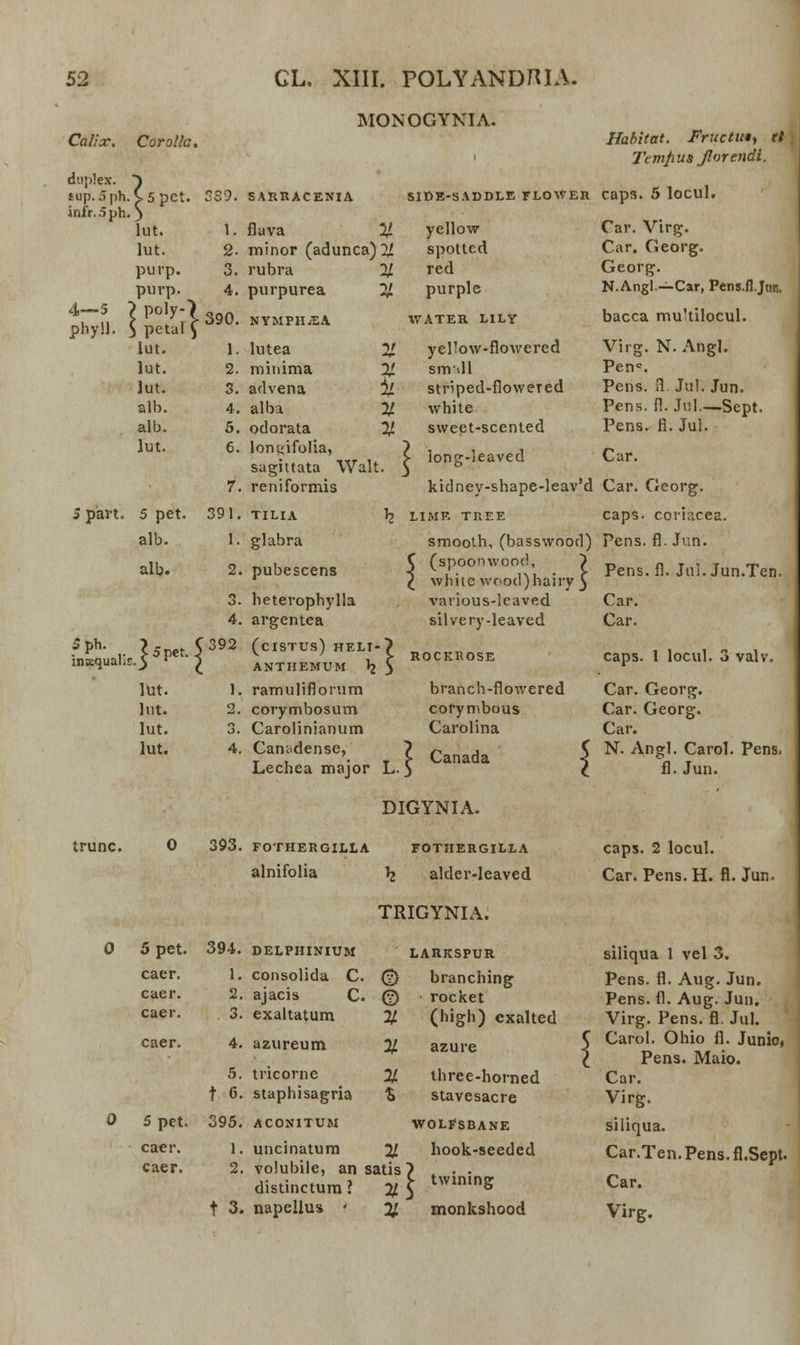 52 CL. XIII. POLYANDRIA.
MONOGYNIA.
Calix. Corolla. Habitat. Fructus, et
Tempus florendi.
duplex.
sup. 5 ph. } 5 pet. 389. SARRACENIA SIDE-SADDLE FLOWER caps. 5 locul.
infr. 5 ph.
lut. 1. flava ♃ yellow Car. Virg.
lut. 2. minor (adunca) ♃ spotted Car. Georg.
purp. 3. rubra ♃ red Georg.
purp. 4. purpurea ♃ purple N.Angl.—Car, Pens.fl.Jun.
4—5 phyll. } poly-petal } 390. NYMPHÆA WATER LILY bacca multilocul.
lut. 1. lutea ♃ yellow-flowered Virg. N. Angl.
lut. 2. minima ♃ small Pens.
lut. 3. advena ♃ striped-flowered Pens. fl. Jul. Jun.
alb. 4. alba ♃ white Pens. fl. Jul.—Sept.
alb. 5. odorata ♃ sweet-scented Pens. fl. Jul.
lut. 6. longifolia, sagittata Walt. } long-leaved Car.
7. reniformis kidney-shape-leav'd Car. Georg.
5 part. 5 pet. 391. TILIA ♄ LIME TREE caps. coriacea.
alb. 1. glabra smooth, (basswood) Pens. fl. Jun.
alb. 2. pubescens { (spoonwood, white wood) hairy } Pens. fl. Jul. Jun. Ten.
3. heterophylla various-leaved Car.
4. argentea silvery-leaved Car.
5 ph. inæqualis. } 5 pet. { 392 (CISTUS) HELIANTHEMUM ♄ } ROCKROSE caps. 1 locul. 3 valv.
lut. 1. ramuliflorum branch-flowered Car. Georg.
lut. 2. corymbosum corymbous Car. Georg.
lut. 3. Carolinianum Carolina Car.
lut. 4. Canadense, Lechea major L. } Canada { N. Angl. Carol. Pens. fl. Jun.
DIGYNIA.
trunc. 0 393. FOTHERGILLA FOTHERGILLA caps. 2 locul.
alnifolia ♄ alder-leaved Car. Pens. H. fl. Jun.
TRIGYNIA.
0 5 pet. 394. DELPHINIUM LARKSPUR siliqua 1 vel 3.
caer. 1. consolida C. ☉ branching Pens. fl. Aug. Jun.
caer. 2. ajacis C. ☉ rocket Pens. fl. Aug. Jun.
caer. 3. exaltatum ♃ (high) exalted Virg. Pens. fl. Jul.
caer. 4. azureum ♃ azure { Carol. Ohio fl. Junio, Pens. Maio.
5. tricorne ♃ three-horned Car.
† 6. staphisagria stavesacre Virg.
0 5 pet. 395. ACONITUM WOLFSBANE siliqua.
caer. 1. uncinatum ♃ hook-seeded Car. Ten. Pens. fl. Sept.
caer. 2. volubile, an satis distinctum? ♃ } twining Car.
† 3. napellus ♃ monkshood Virg.